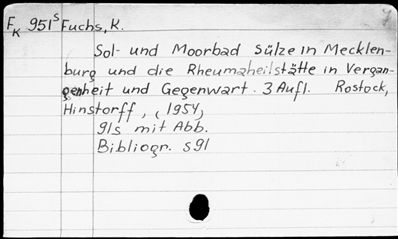 FK 951 S Fuchs, K.
Sol- und Moorbad Sülze in Mecklen-
burg und die Rheumaheilstätte in Vergan-
genheit und Gegenwart. 3 Aufl. Rostock,
Hinstorff, (1954)
91s mit Abb.
Bibliogr. s91